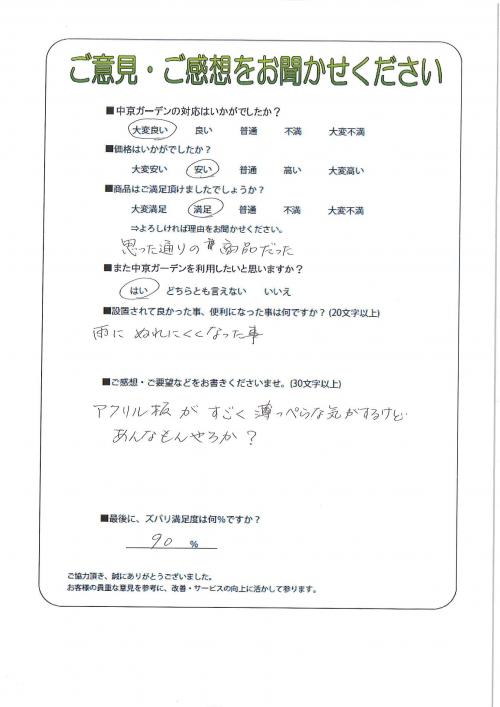 ご意見・ご感想をお聞かせください
■中京ガーデンの対応はいかがでしたか？
大変良い 良い 普通 不満 大変不満
■価格はいかがでしたか？
大変安い 安い 普通 高い 大変高い
■商品はご満足頂けましたでしょうか？
大変満足 満足 普通 不満 大変不満
⇒よろしければ理由をお聞かせください。
思った通りの商品だった
■また中京ガーデンを利用したいと思いますか？
はい どちらとも言えない いいえ
■設置されて良かった事、便利になった事は何ですか？(20文字以上)
雨に ぬれにくくなった事
■ご感想・ご要望などをお書きくださいませ。(30文字以上)
アクリル板が すごく 薄っぺらな気がするけど
あんなもんやろか？
■最後に、ズバリ満足度は何%ですか？
90 %
ご協力頂き、誠にありがとうございました。
お客様の貴重な意見を参考に、改善・サービスの向上に活かして参ります。